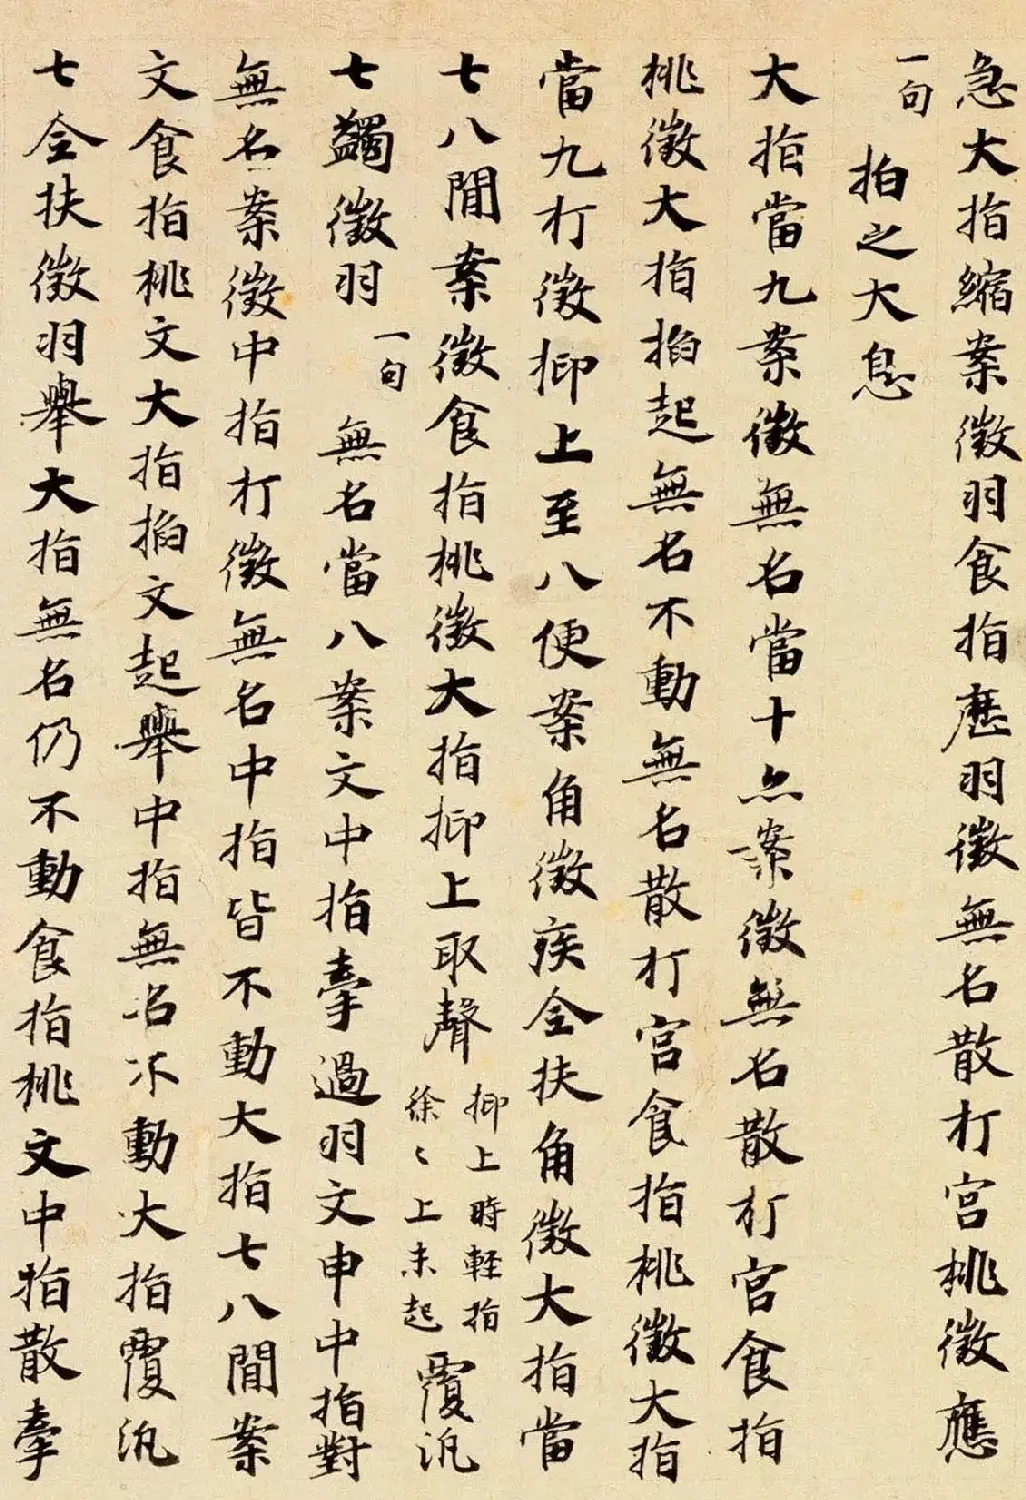 急大指縮案徵羽食指歷羽徵無名散打宮桃徵應
一句 拍之大息
大指當九案徵無名當十案徵無名散打宮食指
桃徵大指掐起無名不動無名散打宮食指桃徵大指
當九打徵抑上至八便案角徵疾全扶角徵大指當
七八間案徵食指桃徵大指抑上取聲抑上時輕指徐〻上未起覆泛
七蠲徵羽一句無名當八案文中指牽過羽文申中指對
無名案徵中指打徵無名中指皆不動大指七八間案
文食指桃文大指掐文起舉中指無名不動大指覆泛
七全扶徵羽舉大指無名仍不動食指桃文中指散牽